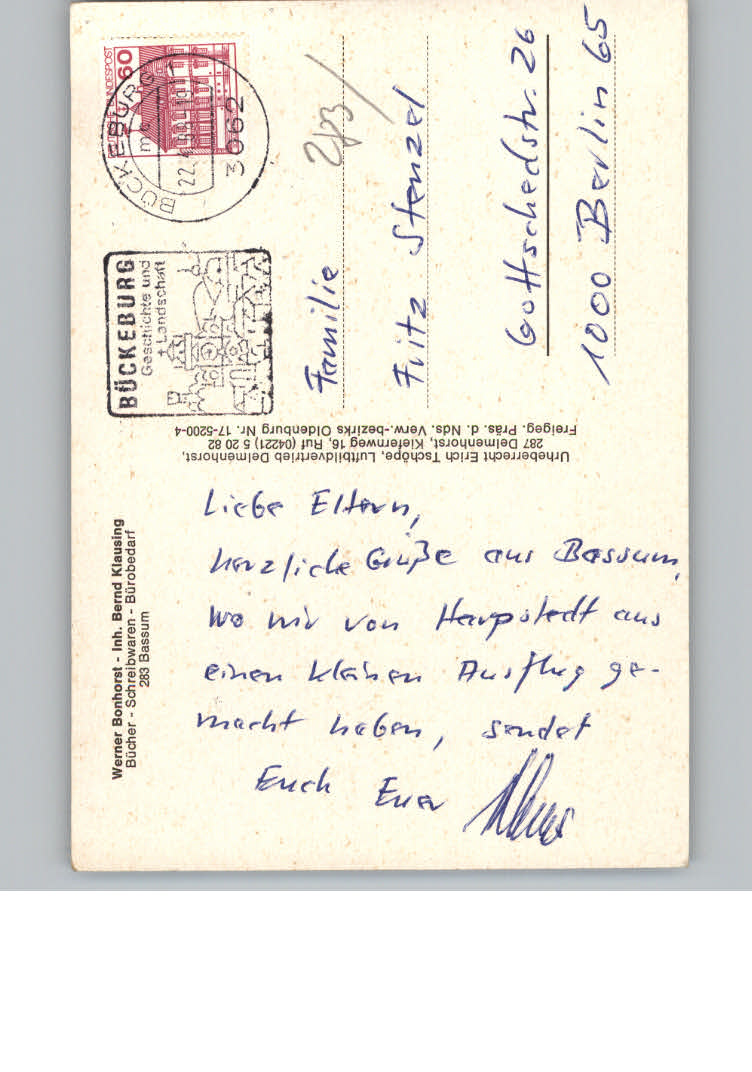 Liebe Eltern,
herzliche Grüße aus Bassum,
wo wir von Harpstedt aus
einen kleinen Ausflug ge-
macht haben, sendet
Euch Euer
Familie
Fritz Stenzel
Gottschedstr. 26
1000 Berlin 65
BÜCKEBURG
Geschichte und
+ Landschaft
BÜCKEBURG 1
3062
DEUTSCHE BUNDESPOST
60
Urheberrecht Erich Tschöpe, Luftbildvertrieb Delmenhorst,
287 Delmenhorst, Kiefernweg 16, Ruf (04221) 5 20 82
Freigeg. Präs. d. Nds. Verw.-bezirks Oldenburg Nr. 17-5200-4
Werner Bonhorst - Inh. Bernd Klausing
Bücher - Schreibwaren - Bürobedarf
283 Bassum